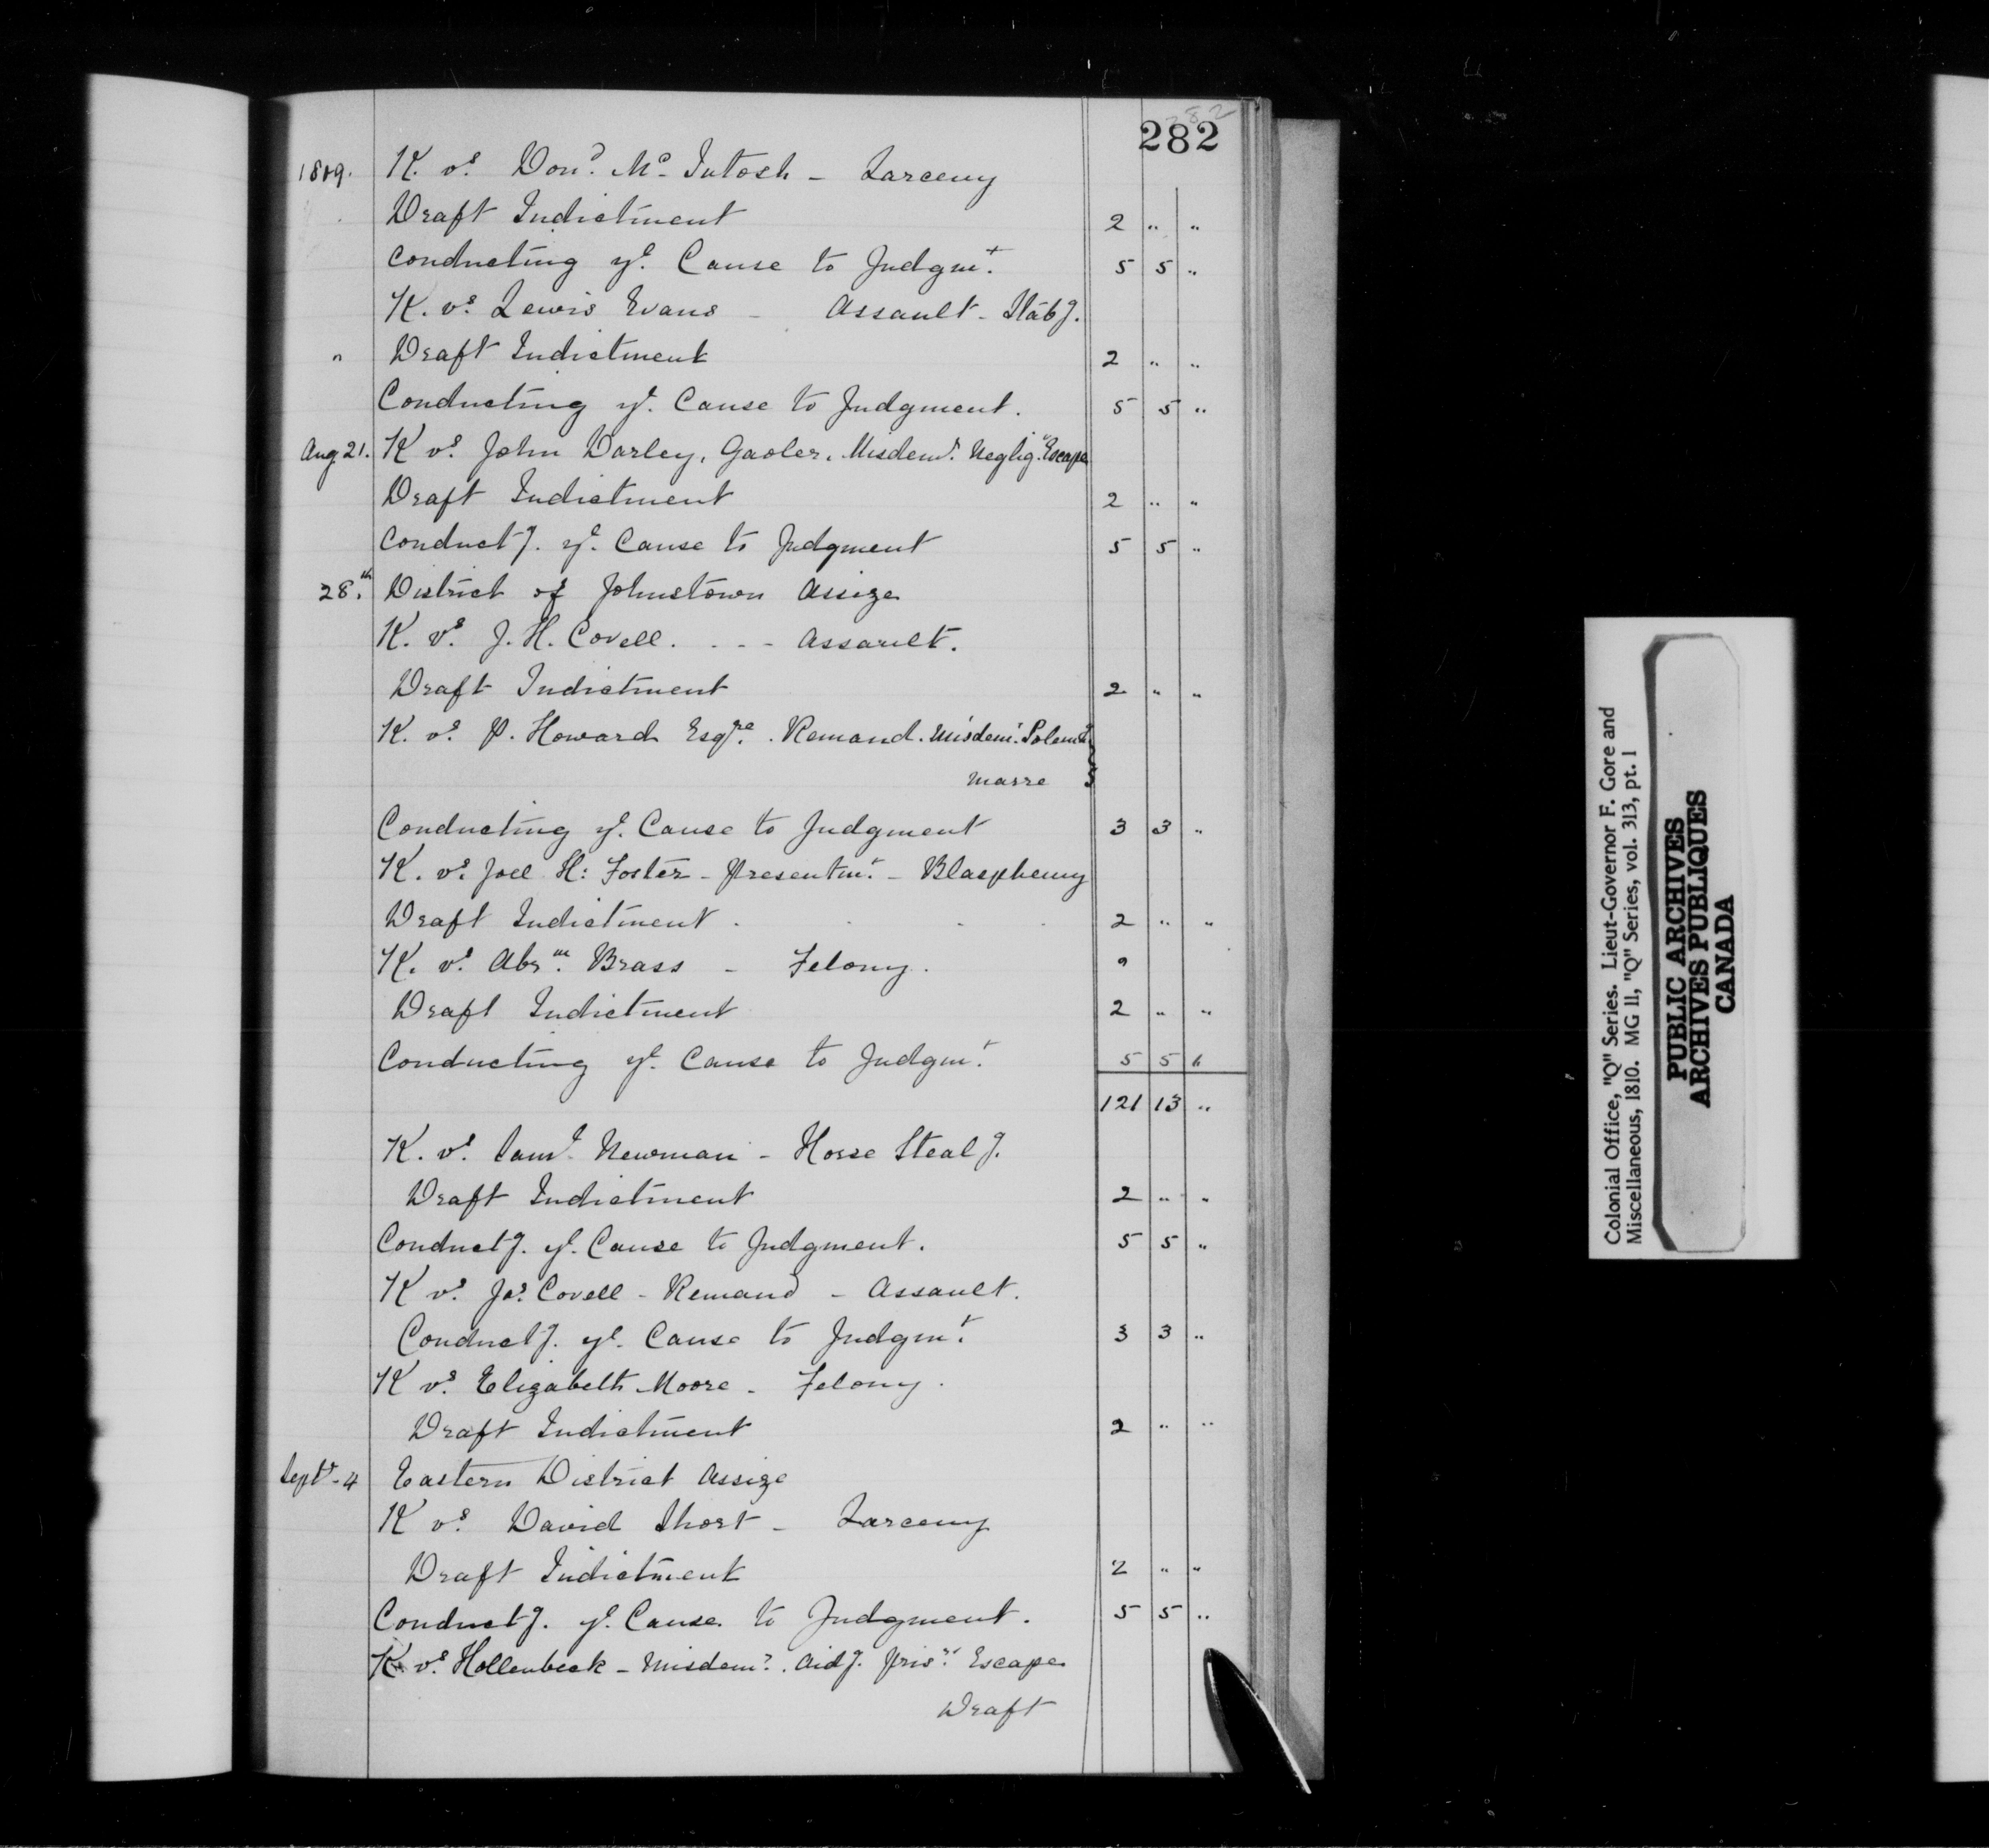 282
1809. K. vs. Dond. Mc.Intosh - Larceny
Draft Indictment 2 .. ..
Conducting ye. Cause to Judgmt. 5 5 ..
K. vs. Lewis Evans - Assault - Stabg.
" Draft Indictment 2 .. ..
Conducting ye. Cause to Judgment. 5 5 ..
Aug. 21. K vs. John Darley, Gaoler. Misdemr. Neglig. Escape
Draft Indictment 2 .. ..
Conductg. ye. Cause to Judgment 5 5 ..
28th. District of Johnstown Assize
K. vs. J. H. Covell. . - - Assault.
Draft Indictment 2 .. ..
K. vs. P. Howard Esqre. . Remand. Misdemr.
Conducting ye. Cause to Judgment 3 3 ..
K. vs. Joel H: Foster - presentmt. - Blasphemy
Draft Indictment . 2 .. ..
K. vs. Abrm. Brass - Felony. "
Draft Indictment 2 .. ..
Conducting ye. Cause to Judgmt. 5 5 "
121 13 ..
K. vs. Saml. Newman - Horse Stealg.
Draft Indictment 2 .. ..
Conductg. ye. Cause to Judgment. 5 5 ..
K vs. Jas. Covell - Remand - Assault.
Conductg. ye. Cause to Judgmt. 3 3 ..
K vs. Elizabeth Moore - Felony.
Draft Indictment 2 .. ..
Septr. 4 Eastern District Assize
K vs. David Short - Larceny
Draft Indictment 2 .. ..
Conductg. ye. Cause to Judgment. 5 5 ..
K vs. Hollenbeck - Misdemr. . Aidg. prisrs. Escape
Draft
Colonial Office, "Q" Series. Lieut-Governor F. Gore and
Miscellaneous, 1810. MG 11, "Q" Series, vol. 313, pt. 1
PUBLIC ARCHIVES
ARCHIVES PUBLIQUES
CANADA